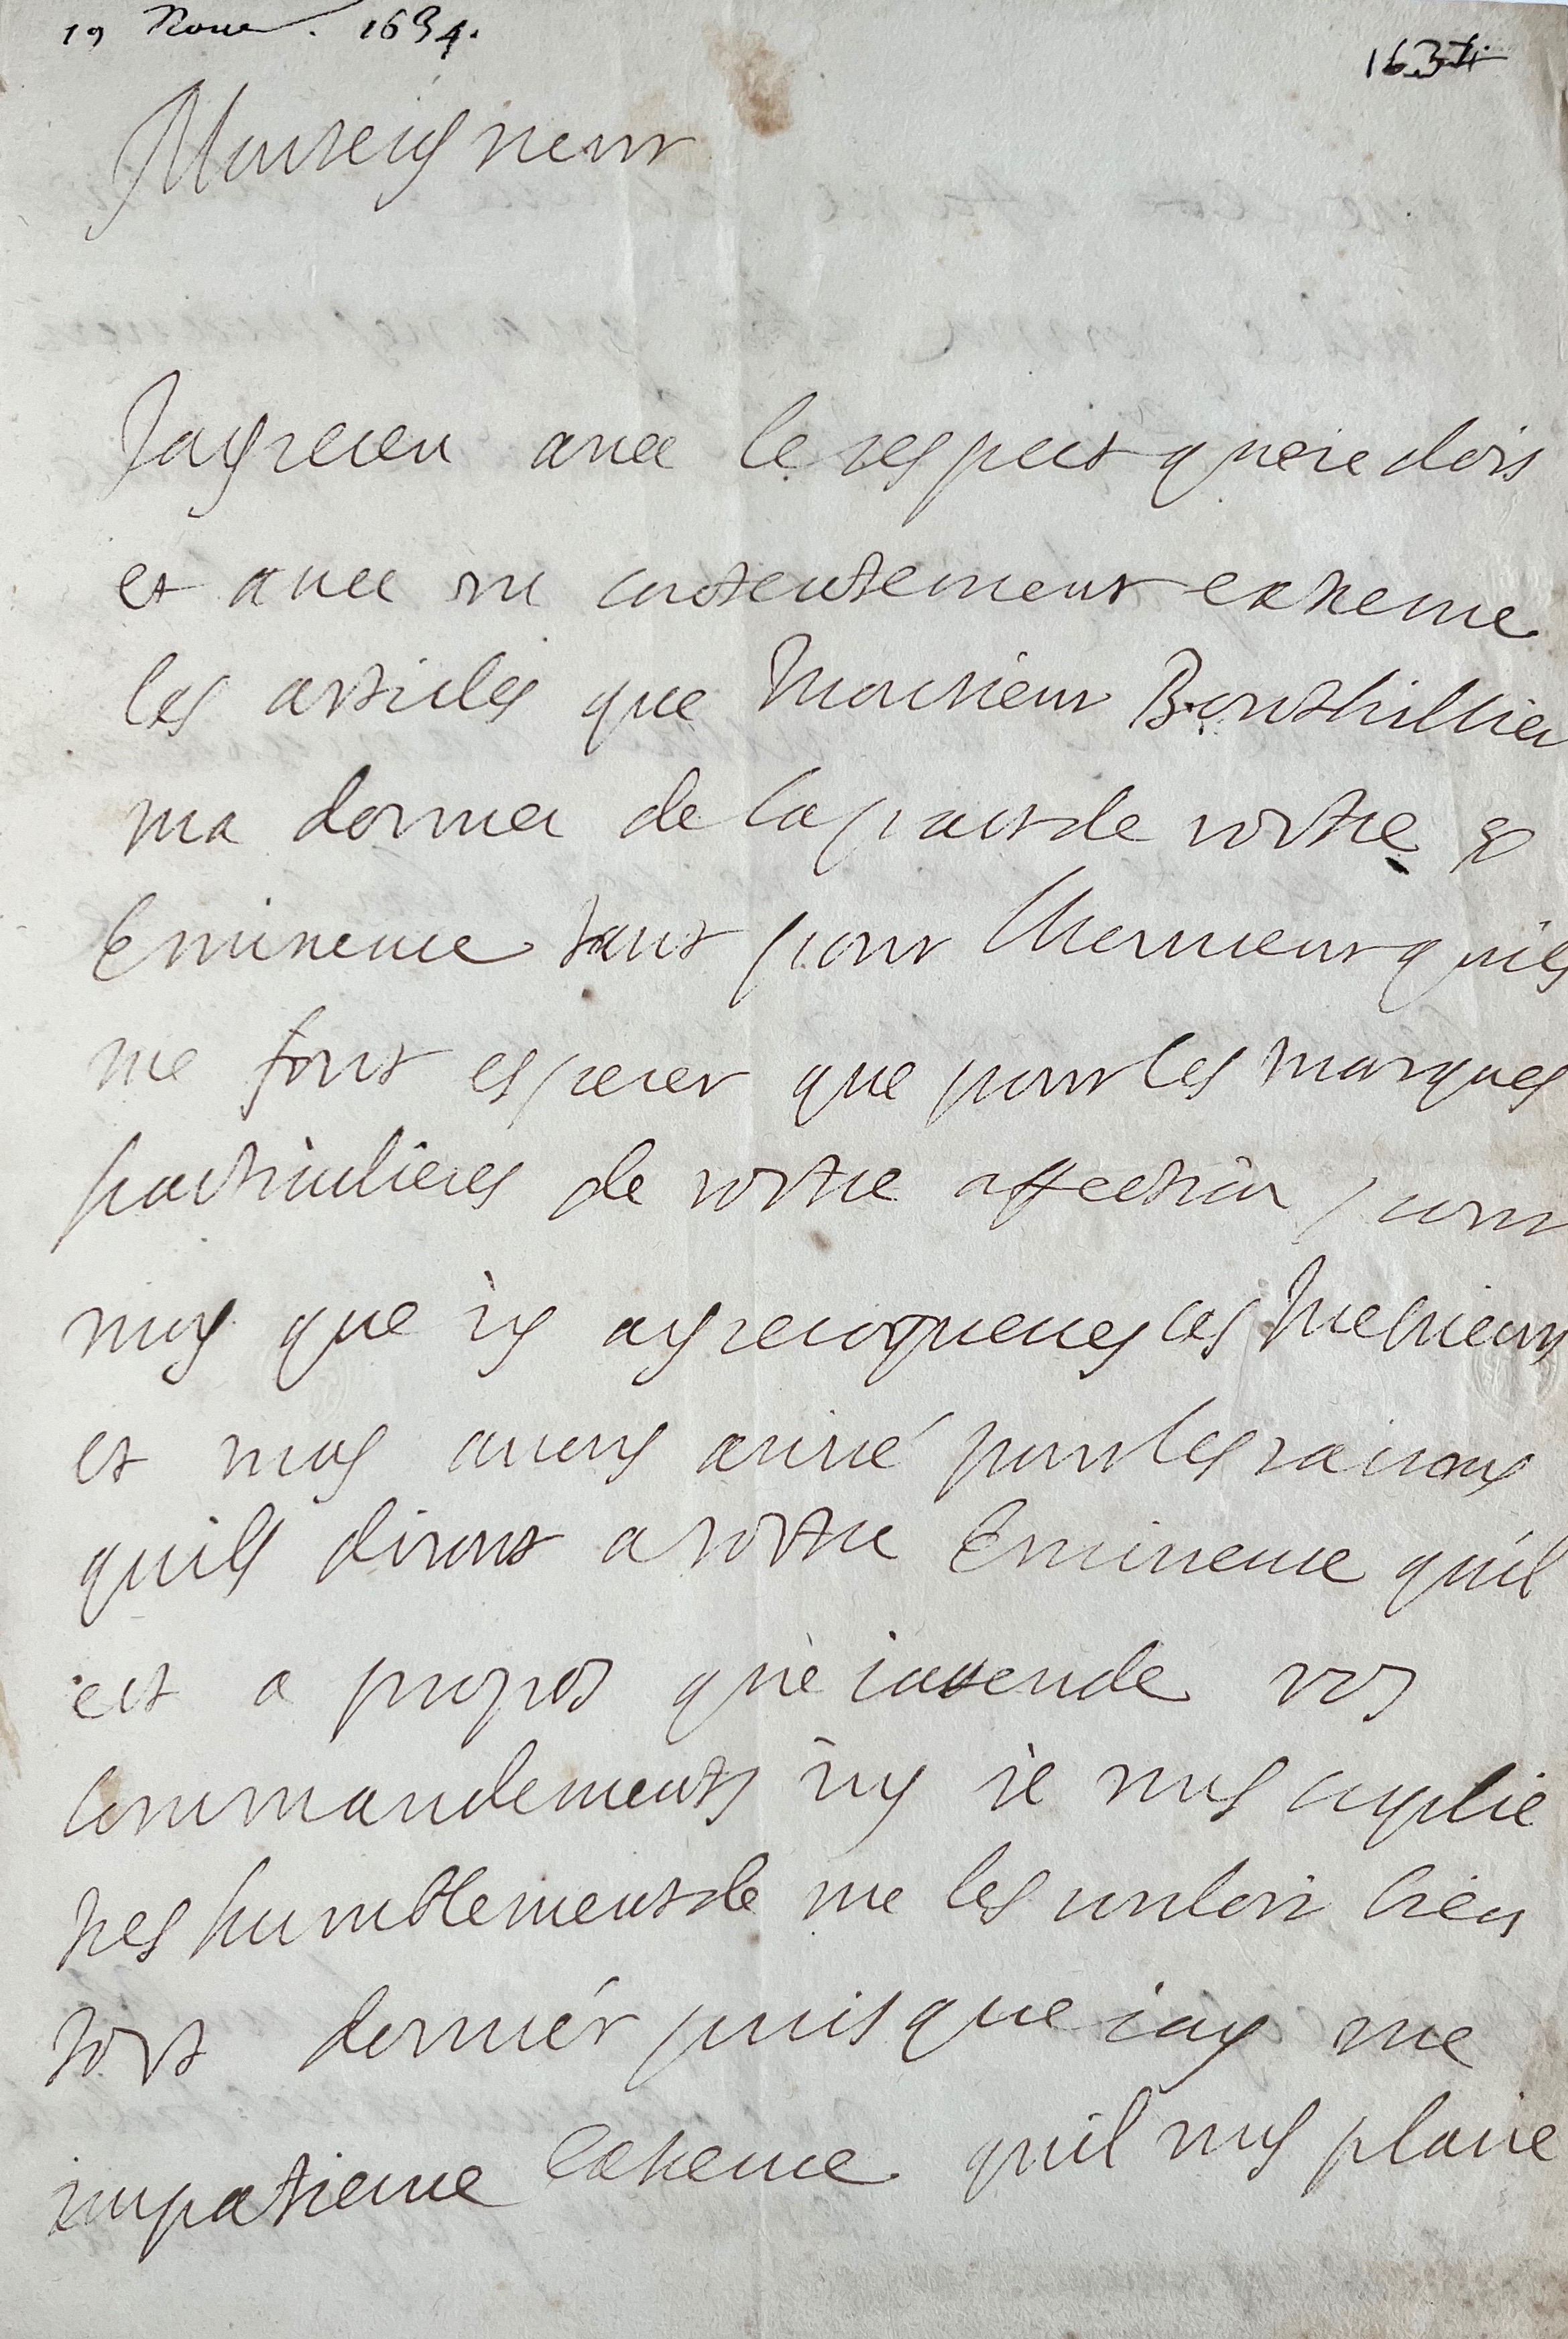 19 Nove. 1634.
1634
Monseigneur
Jay receu avec le respect que ie dois
et avec un contentement extreme
les articles que Monsieur Bouthillier
ma donner de la part de vostre
Eminence tant pour lhonneur quils
me font esperer que pour les marques
particulieres de vostre affection pour
moy que iy ay recognues ces Messieurs
et moy avons avisé pour les raisons
quils diront a vostre Eminence quil
est a propos que iattende vos
commandements icy ie vous suplie
tres humblement de me les vouloir bien
tost donner puis que iay une
impatience extreme quil vous plaise